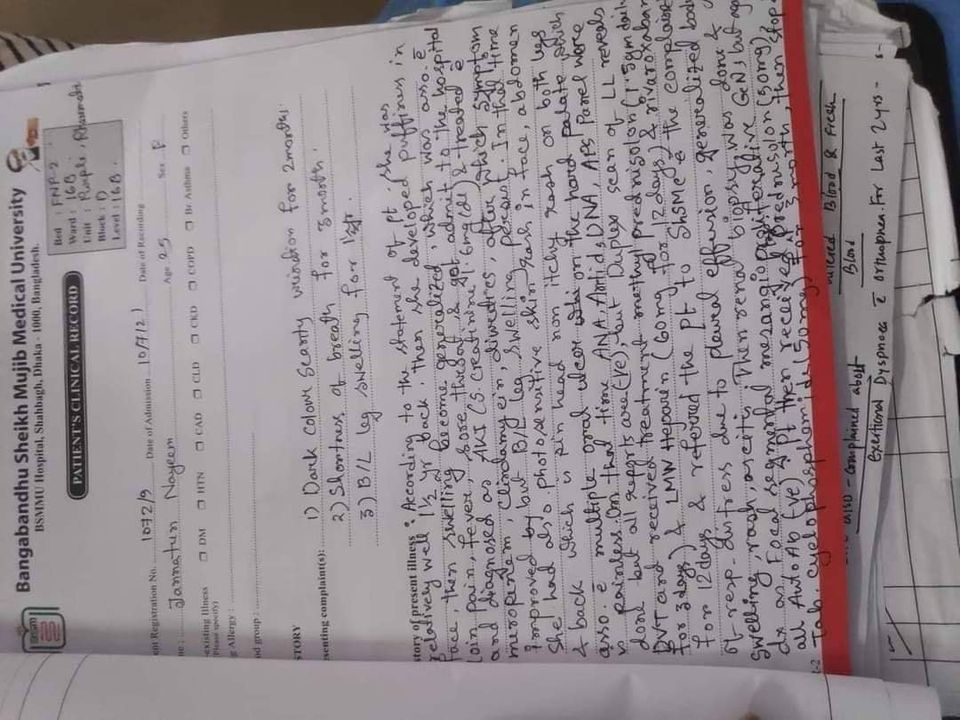 Bangabandhu Sheikh Mujib Medical University
BSMMU Hospital, Shahbagh, Dhaka - 1000, Bangladesh.
PATIENT'S CLINICAL RECORD
Bed : FNP-2
Ward : 16B
Unit : Purple,
Block : D
Level : 16B.
ent Registration No. 1072/9 Date of Admission 10/7/21 Date of Recording
me : Jannatun Nayeem Age 25 Sex F
existing Illness □ DM □ HTN □ CAD □ CLD □ CKD □ COPD □ Br. Asthma □ Others
(Please specify)
g Allergy :
od group :
STORY
esenting complaint(s): 1) Dark colour scanty micturition for 2 months
2) Shortness of breath for 3 month.
3) B/L leg swelling for 1½ yr.
story of present illness : According to the statement of pt. she was
relatively well 1½ yr back. then she developed puffiness in
face, then swelling become generalized, which was asso. c̄
loin pain, fever, sore throat, & got admit to the hospital
and diagnosed as AKI (S. Creatinine 1.6mg/dl) & treated c̄
meropenem, clindamycin, diuretics, after which symptom
improved by but B/L leg swelling persist. In that time
She had also photosensitive skin rash in face, abdomen
& back which is pain less non itchy rash on both legs
asso. c̄ multiple oral ulcer on the hard palate which
is painless. On that time ANA, Anti dsDNA, APS Panel were
done but all reports are (-ve), but Duplex scan of LL reveals
DVT and received treatment methyl prednisolon (1.5gm daily
for 3 days) & LMW Heparin (60mg for 12 days) & rivaroxaban
for 12 days & refered the pt to ShSMC c̄ the complaint
of resp. distress due to pleural effusion, generalized body
swelling, rash, ascitis. Then renal biopsy was done &
dx as Focal segmental mesangioproliferative GeN, but again
all Auto Ab (-ve). pt then received Prednisolon (50mg)
Tab. cyclophosphemide (50mg) for 3 month, then stop
She also complained about Blood
Exertional Dyspnoea c̄ orthopnea. For Last 2yrs -